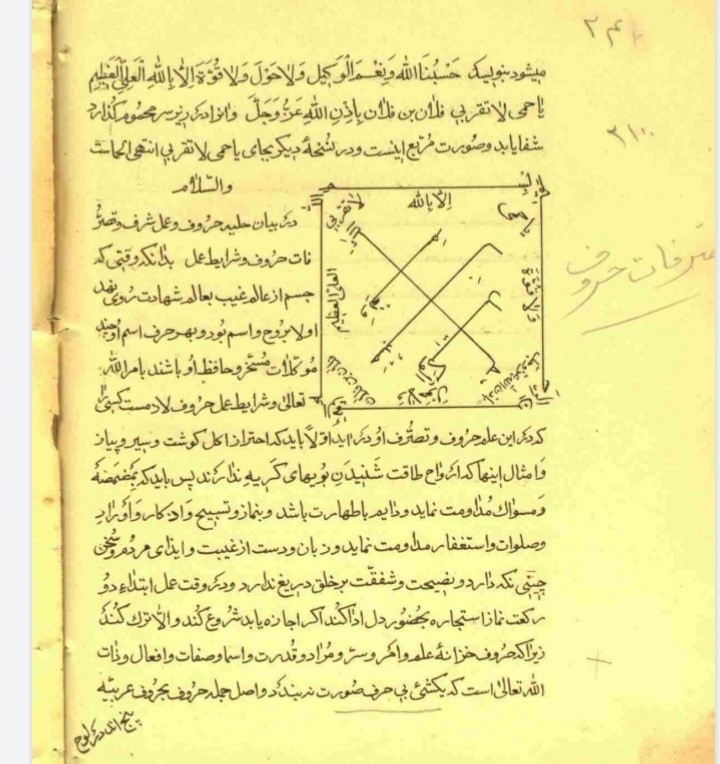 ۲۴۰
میشود بنویسک حَسْبُنَا اللّٰه وَنِعْمَ الْوَکیٖل وَلا حَوْلَ وَلا قُوَّةَ اِلّا بِاللّٰهِ الْعَلِیِّ الْعَظیٖمِ
یا حمی لا تقربی فلان بن فلان بِاِذْنِ اللّٰهِ عَزَّ وَجَلَّ وانرا در زیر سر محموم گذارد
شفا یابد وصورت مربع اینست ودر نسخهٔ دیگر بجای یا حمی لا تقربی
۳۱۰۰
والسّلام
اِلّا بِاللّٰه
لا تقربی
یا حمی
العلیّ العظیم
ولا قوّة
در بیان حروف وعمل شرف وتصرّ
فات حروف وشرایط عمل بدانکه وقتی که
جسم از عالم غیب بعالم شهادت روی نهد
اولا بروح واسم بود وبهر حرف اسم او چند
موکلات مسخّر وحافظ او باشند بامر اللّٰه
تعالیٰ وشرایط عمل حروف
تصرفات حروف
که در این علم حروف وتصرّف او در اید اوّلاً باید که احتراز از اکل کوشت وسیر وپیاز
وامثال اینها که ارواح طاقت شنیدن بویهای کریه ندارند پس باید که بمضمضه
ومسواک مداومت نماید ودایم با طهارت باشد وبنماز وتسبیح واذکار واوراد
وصلوات واستغفار مداومت نماید وزبان ودست از غیبت وایذای مردم وسخن
چینی نکه دارد ونصیحت وشفقّت بر خلق دریغ ندارد ودر وقت عمل ابتداء دو
رکعت نماز استجاره بحضور دل ادا کند اکر اجازه یابد شروع کند والّا ترک کند
زیرا که حروف خزانهٔ علم وامر وسرّ ومراد وقدرت واسما وصفات وافعال وذات
اللّٰه تعالیٰ است که یکشئ بی حرف صورت نه بندد واصل جمله حروف بحروف عربیّه